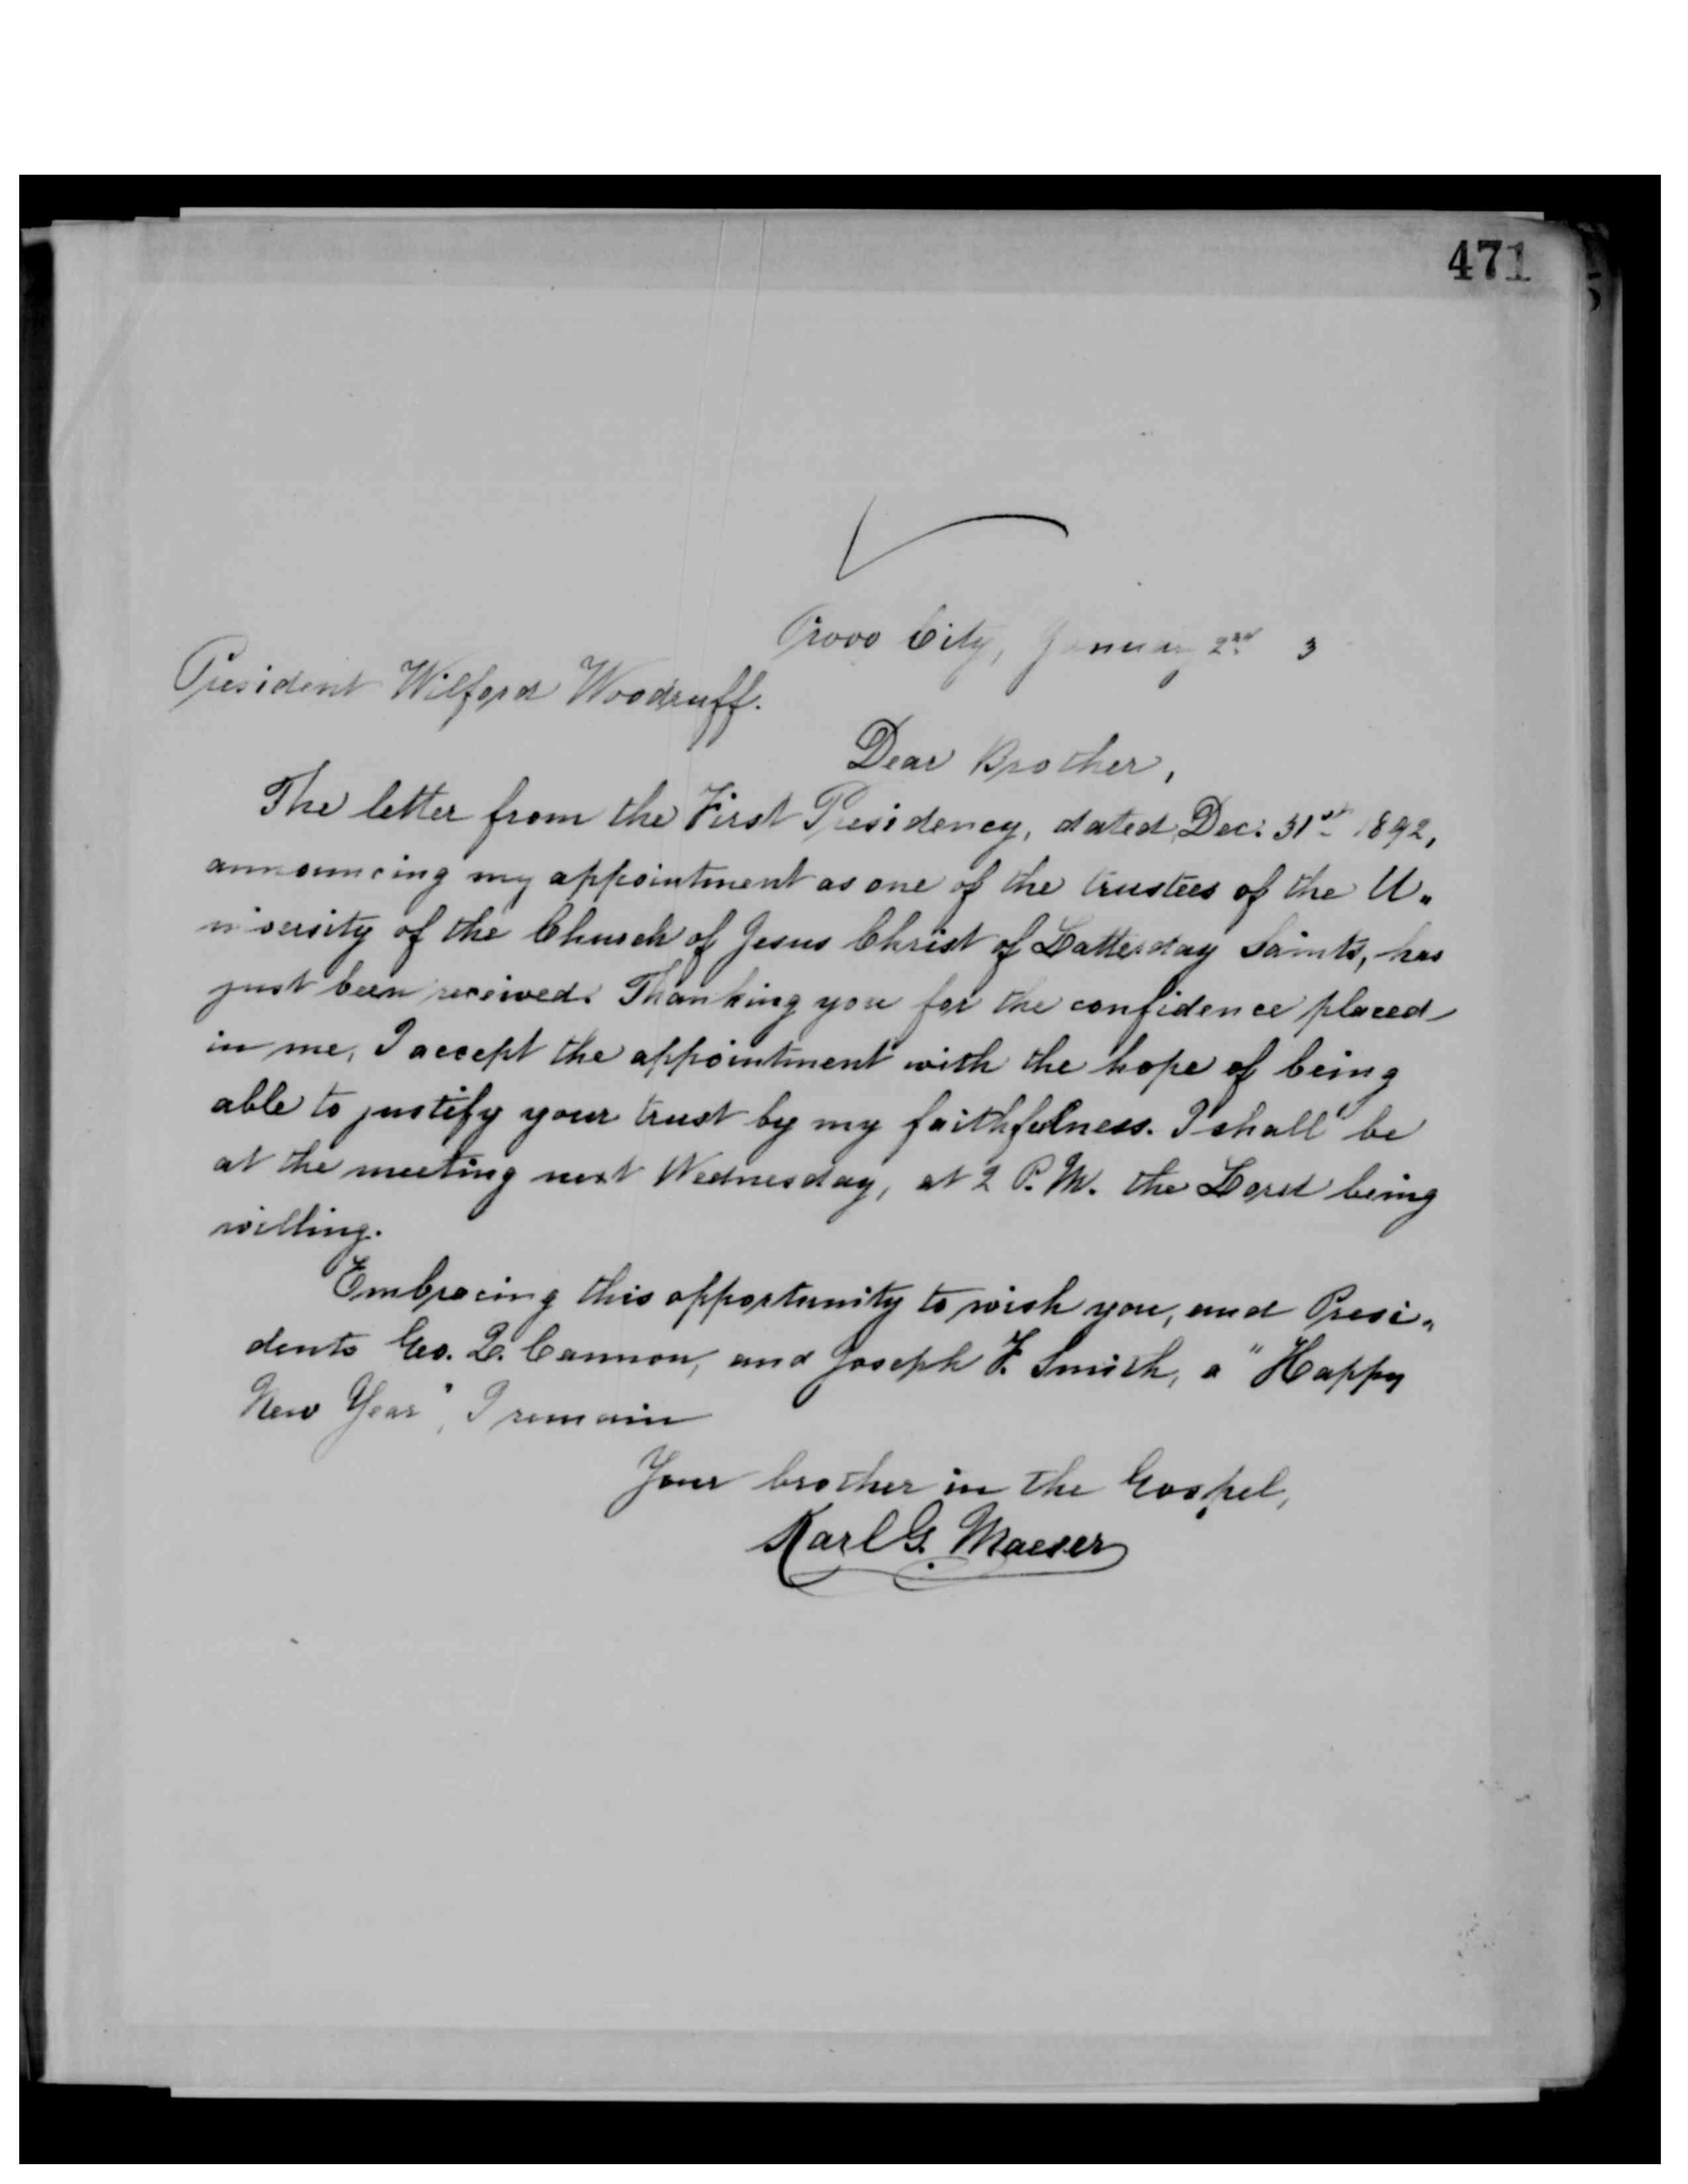 471
Provo City, January 2nd 3
President Wilford Woodruff.
Dear Brother,
The letter from the First Presidency, dated Dec. 31st 1892,
announcing my appointment as one of the trustees of the U-
niversity of the Church of Jesus Christ of Latterday Saints, has
just been received. Thanking you for the confidence placed
in me, I accept the appointment with the hope of being
able to justify your trust by my faithfulness. I shall be
at the meeting next Wednesday, at 2 P.M. the Lord being
willing.
Embracing this opportunity to wish you, and Presi-
dents Geo. Q. Cannon, and Joseph F. Smith, a "Happy
New Year", I remain
Your brother in the Gospel,
Karl G. Maeser